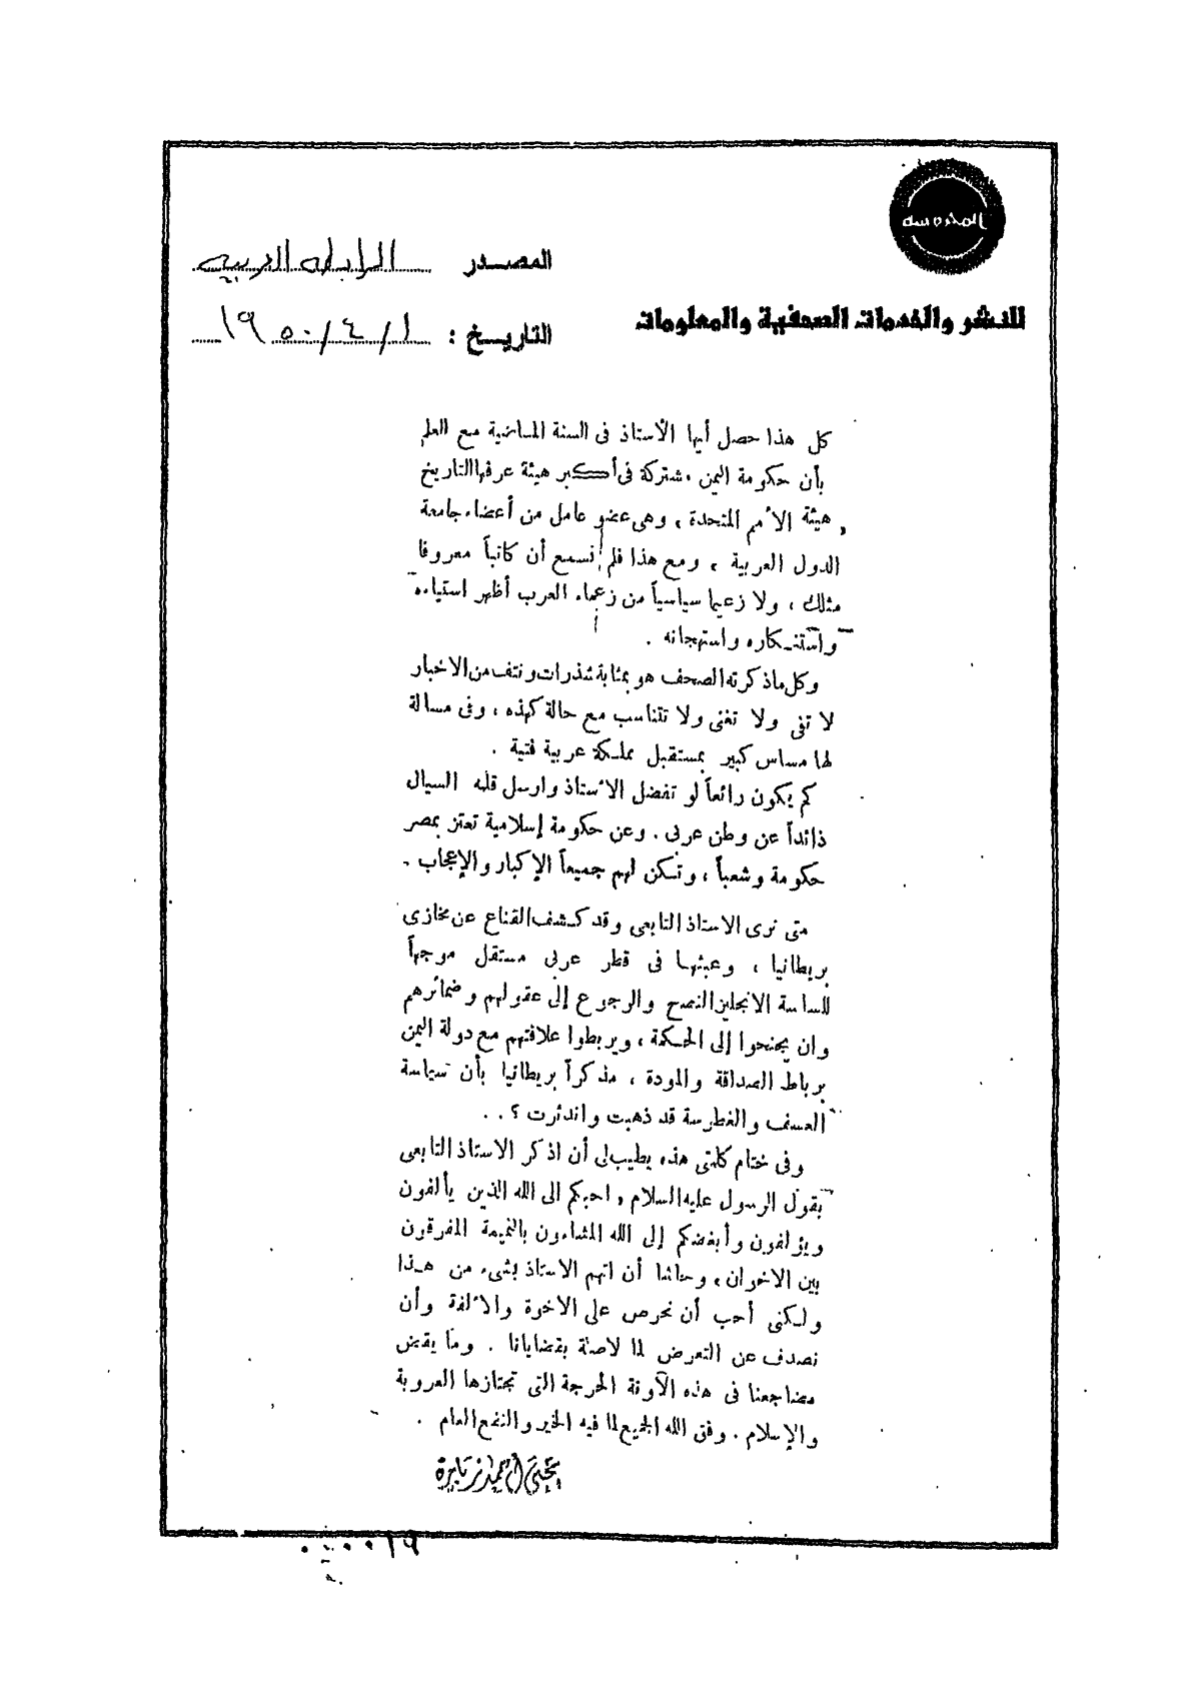 المحروسة
للنشر والخدمات الصحفية والمعلومات
المصدر الرابطه العربيه
التاريخ : ١/٤/١٩٥٠
كل هذا حصل أيها الأستاذ فى السنة الماضية مع العلم
بأن حكومة اليمن مشتركة فى أكبر هيئة عرفها التاريخ
« هيئة الأمم المتحدة ، وهى عضو عامل من أعضاء جامعة
الدول العربية ، ومع هذا فلم نسمع أن كاتباً معروفا
مثلك ، ولا زعيما سياسياً من زعماء العرب أظهر استياءه
واستنكاره واستهجانه .
وكل ماذكرته الصحف هو بمثابة شذرات ونتف من الاخبار
لا تفى ولا تغنى ولا تتناسب مع حالة كهذه ، وفى مسالة
لها مساس كبير بمستقبل مملكة عربية فتية .
كم يكون رائعاً لو تفضل الأستاذ وارسل قلمه السيال
ذائداً عن وطن عربى . وعن حكومة إسلامية تعتز بمصر
حكومة وشعباً ، وتكن لهم جميعاً الإكبار والإعجاب .
متى نرى الاستاذ التابعى وقد كشف القناع عن مخازى
بريطانيا ، وعبثها فى قطر عربى مستقل موجهاً
للساسة الانجليز النصح والرجوع إلى عقولهم وضمائرهم
وان يجنحوا إلى الحكمة ، ويربطوا علاقتهم مع دولة اليمن
برباط الصداقة والمودة ، مذكراً بريطانيا بأن سياسة
العسف والغطرسة قد ذهبت واندثرت ؟ . .
وفى ختام كلمتى هذه يطيب لى أن اذكر الاستاذ التابعى
بقول الرسول عليه السلام « احبكم الى الله الذين يألفون
ويؤلفون وأبغضكم إلى الله المشاءون بالنميمة المفرقون
بين الاخوان ، وحاشا أن اتهم الاستاذ بشىء من هذا
ولكنى أحب أن نحرص على الاخوة والألفة وأن
نصدف عن التعرض لما لاصلة بقضايانا . وما يقض
مضاجعنا فى هذه الآونة الحرجة التى تجتازها العروبة
والإسلام . وفق الله الجميع لما فيه الخير والنفع العام .
يحيى أحمد زبارة